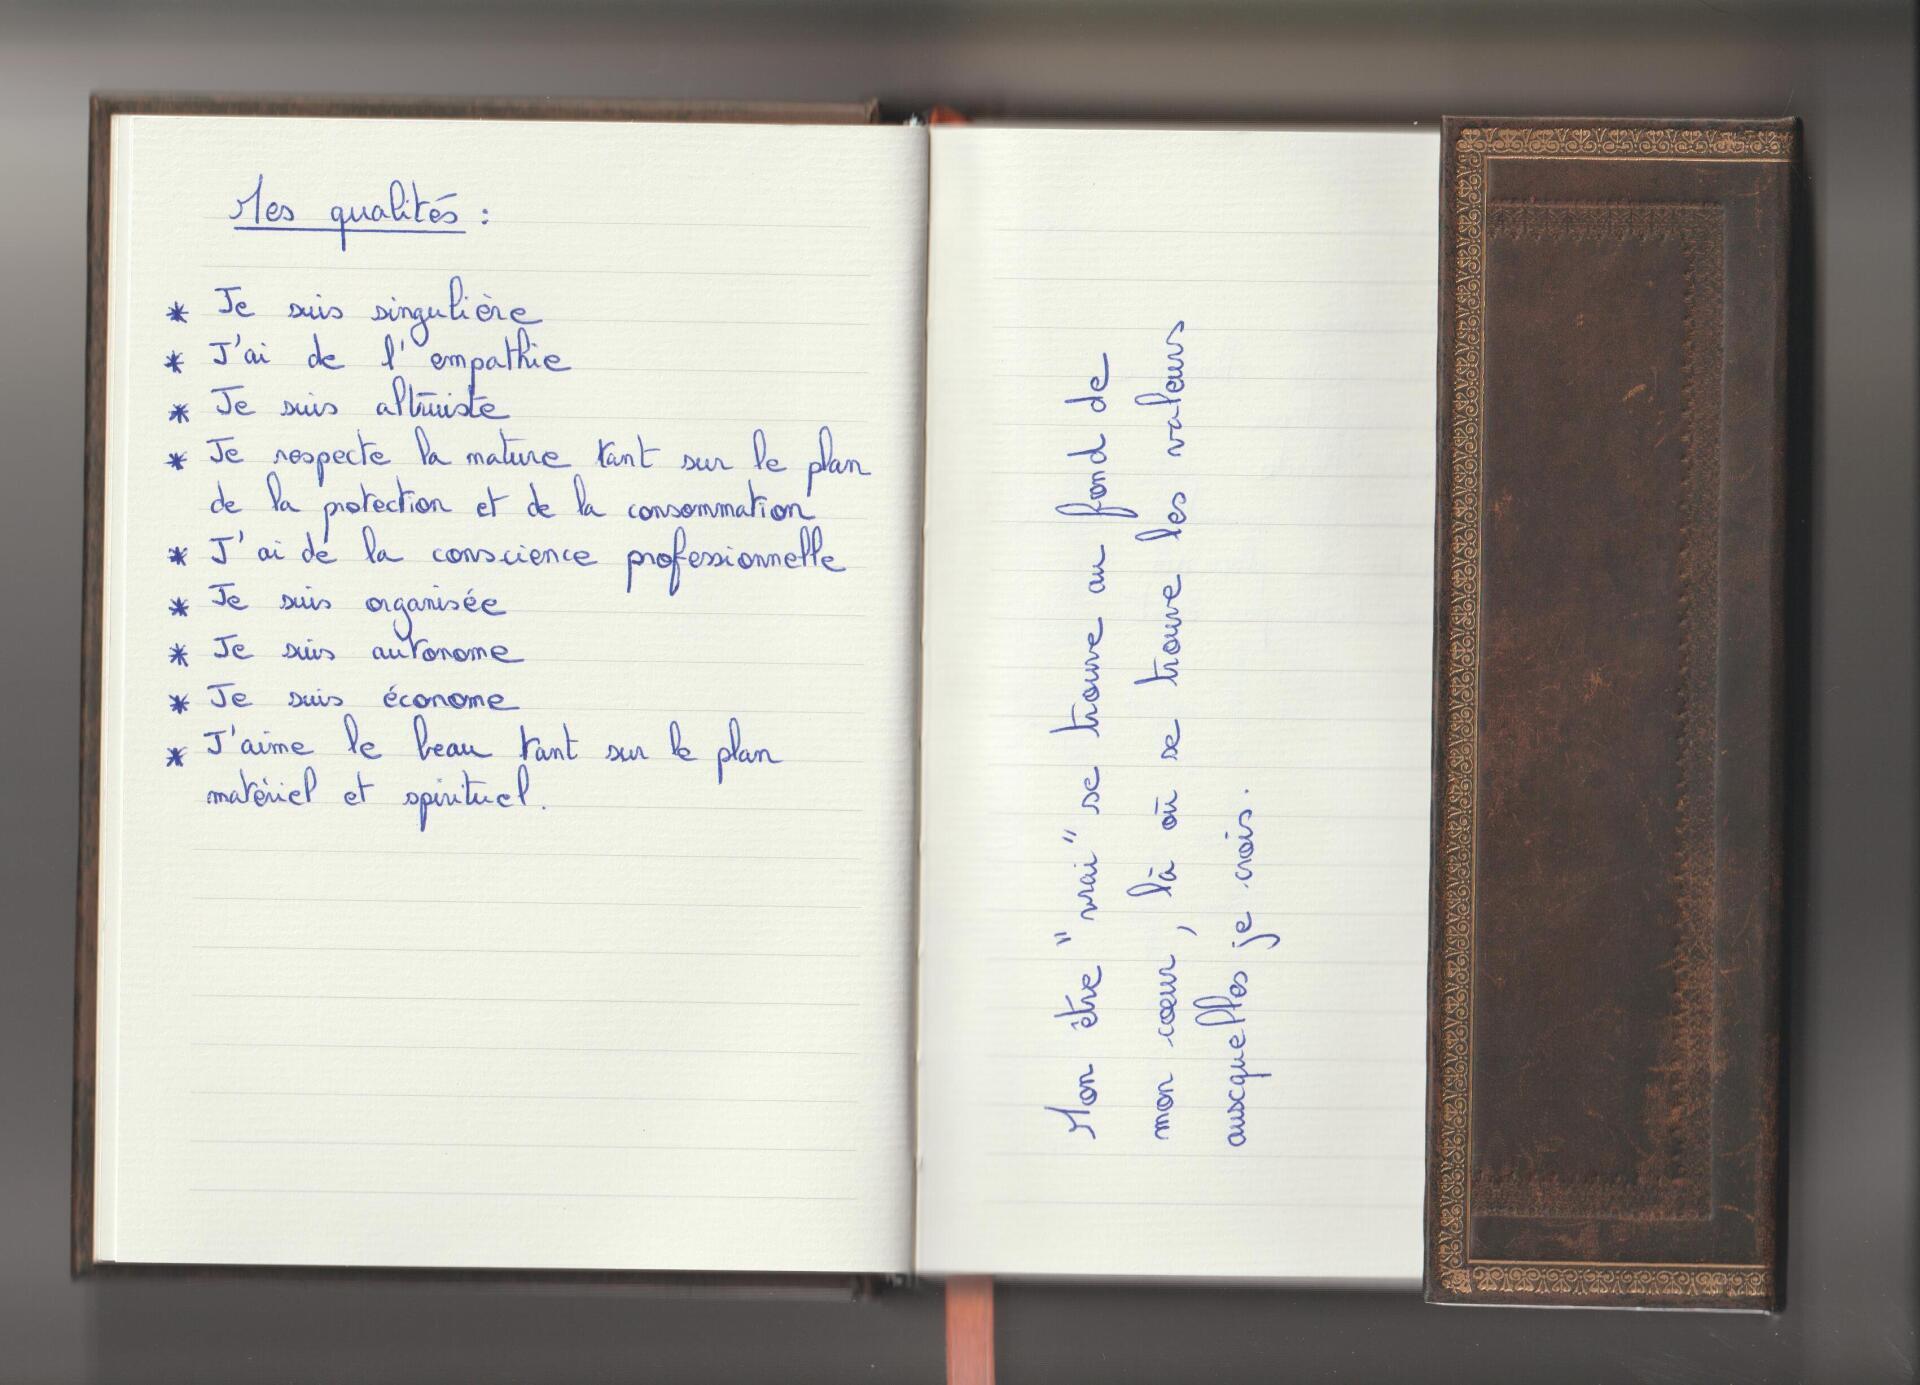 Mes qualités :
* Je suis singulière
* J'ai de l'empathie
* Je suis altruiste
* Je respecte la nature tant sur le plan
de la protection et de la consommation
* J'ai de la conscience professionnelle
* Je suis organisée
* Je suis autonome
* Je suis économe
* J'aime le beau tant sur le plan
matériel et spirituel.
Mon être "vrai" se trouve au fond de
mon cœur, là où se trouve les valeurs
auxquelles je crois.